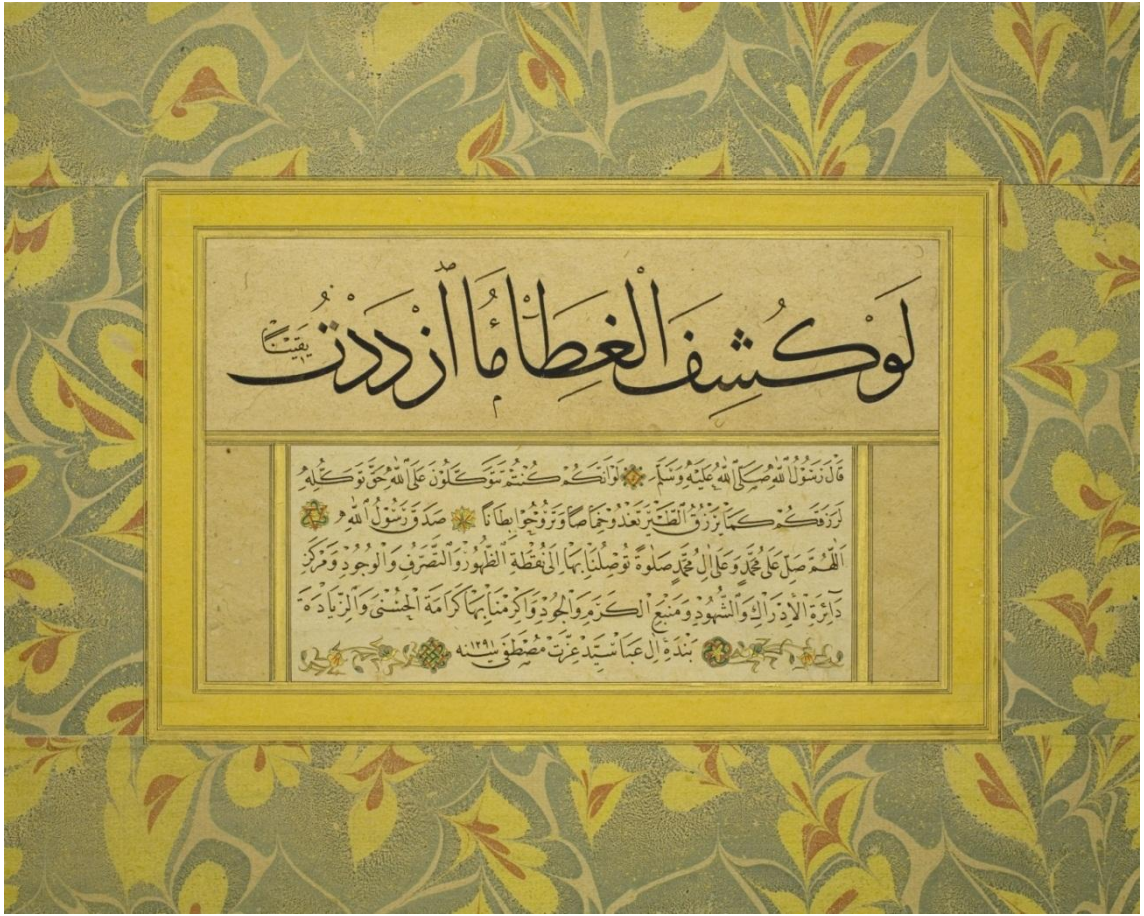 لَوْ كُشِفَ الْغِطَاءُ مَا ازْدَدْتُ يَقِينًا
قَالَ رَسُولُ اللّٰهِ صَلَّى اللّٰهُ عَلَيْهِ وَسَلَّمَ لَوْ اَنَّكُمْ كُنْتُمْ تَتَوَكَّلُونَ عَلَى اللّٰهِ حَقَّ تَوَكُّلِهِ
لَرَزَقَكُمْ كَمَا يَرْزُقُ الطَّيْرَ تَغْدُو خِمَاصًا وَتَرُوحُ بِطَانًا صَدَقَ رَسُولُ اللّٰهِ
اَللّٰهُمَّ صَلِّ عَلَى مُحَمَّدٍ وَعَلَى اٰلِ مُحَمَّدٍ صَلٰوةً تُوصِلُنَا بِهَا اِلَى نُقْطَةِ الظُّهُورِ وَالتَّصَرُّفِ وَالْوُجُودِ وَمَرْكَزِ
دَائِرَةِ الْاِدْرَاكِ وَالشُّهُودِ وَمَنْبَعِ الْكَرَمِ وَالْجُودِ وَاَكْرِمْنَا بِهَا كَرَامَةَ الْحُسْنٰى وَالزِّيَادَةَ
بَنْدَهٔ اٰلِ عَبَا سَيِّدْ عِزَّتْ مُصْطَفَى سنه ١٢٩١